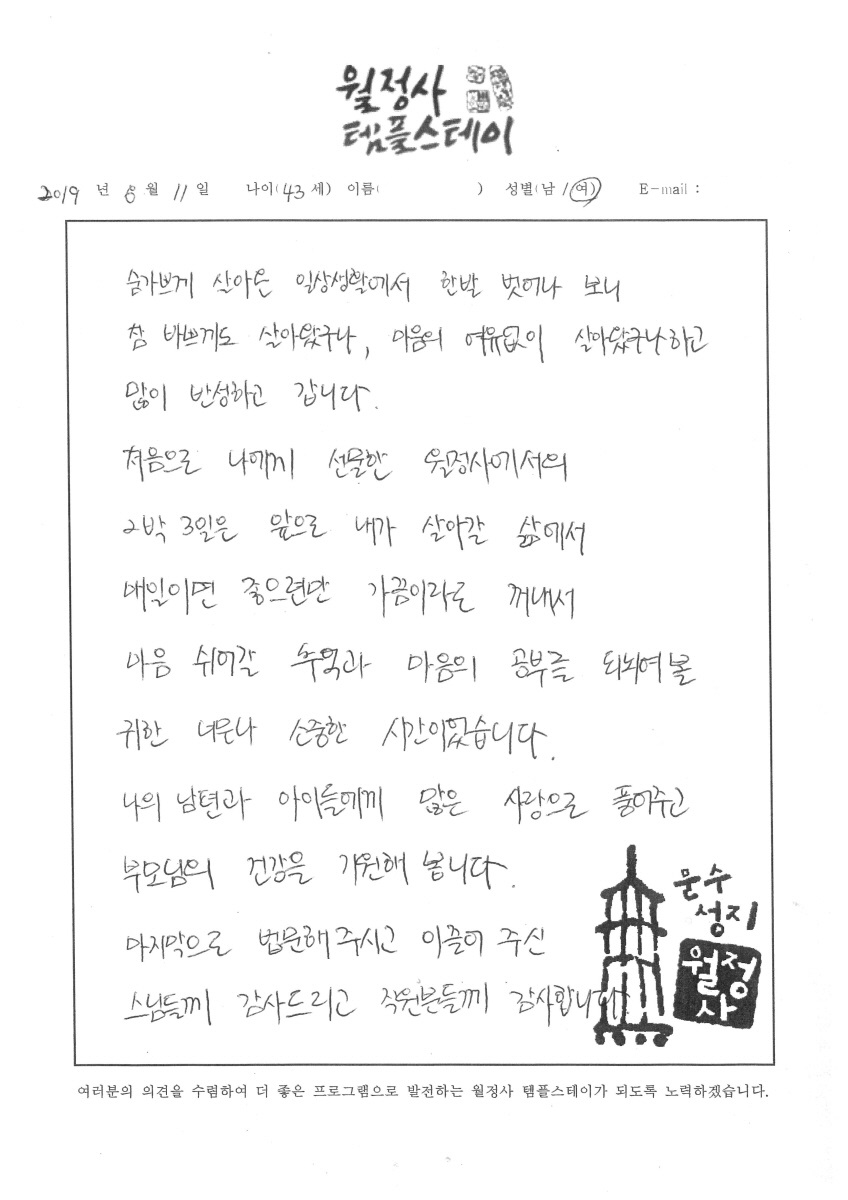 월정사
템플스테이
2019 년 8 월 11 일 나이(43 세) 이름( ) 성별(남/여) E-mail :
숨가쁘게 살아온 일상생활에서 한발 벗어나 보니
참 바쁘게도 살아왔구나, 마음의 여유없이 살아왔구나하고
많이 반성하고 갑니다.
처음으로 나에게 선물한 월정사에서의
2박 3일은 앞으로 내가 살아갈 삶에서
매일이면 좋으련만 가끔이라도 꺼내서
마음 쉬어갈 추억과 마음의 공부를 되뇌여볼
귀한 너무나 소중한 시간이였습니다.
나의 남편과 아이들에게 많은 사랑으로 풀어주고
부모님의 건강을 기원해 봅니다.
마지막으로 법문해주시고 이끌어 주신
스님들께 감사드리고 직원분들께 감사합니다.
문수
성지
월정
사
여러분의 의견을 수렴하여 더 좋은 프로그램으로 발전하는 월정사 템플스테이가 되도록 노력하겠습니다.